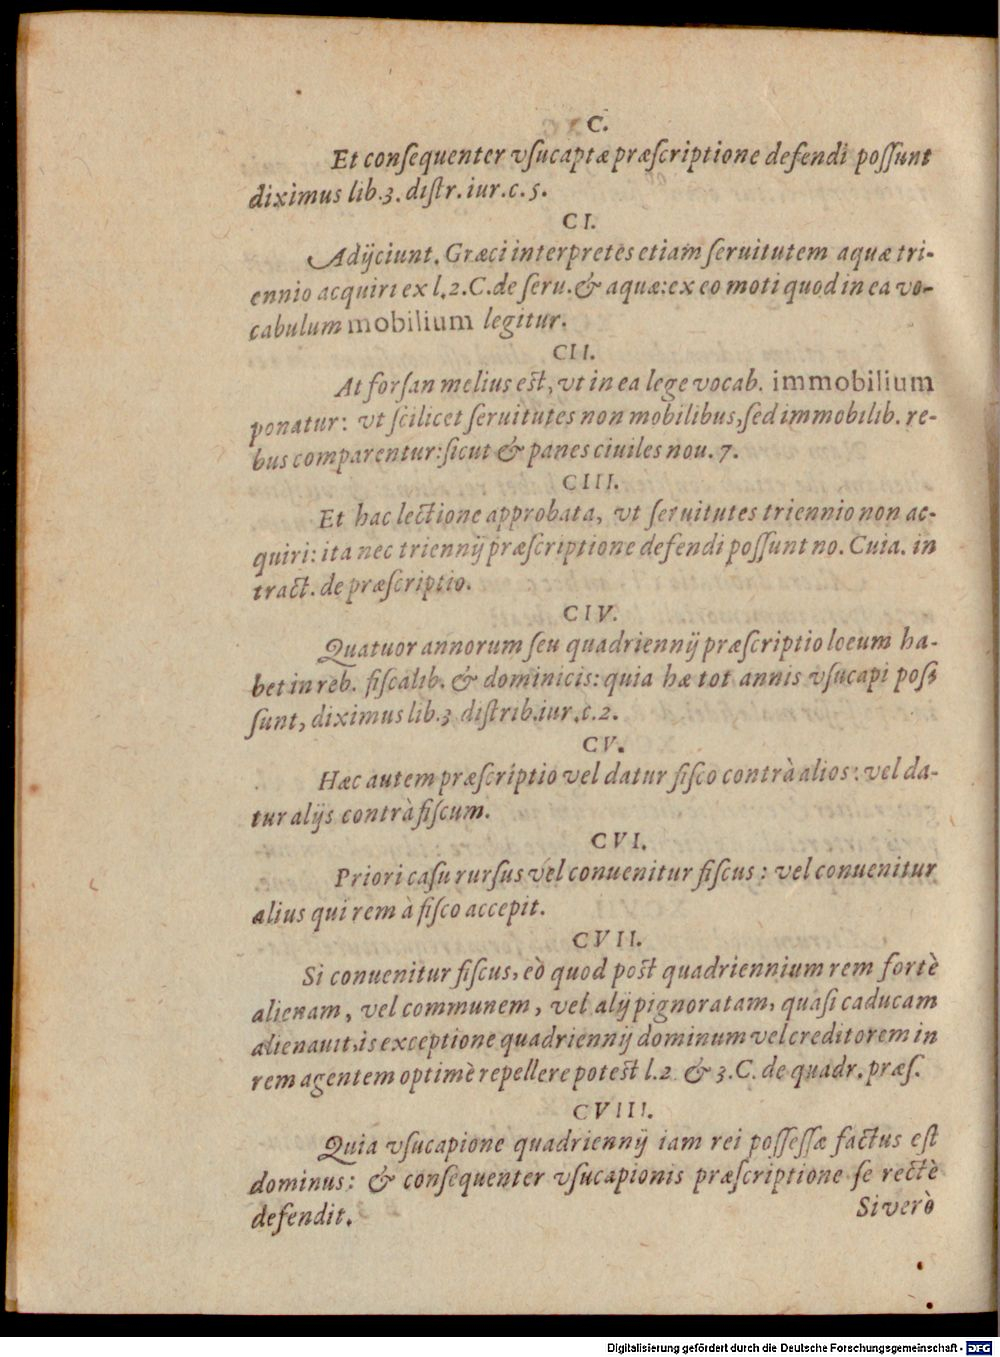 C.
Et conſequenter vſucaptæ præſcriptione defendi poſſunt
diximus lib. 3. diſtr. iur. c. 5.
CI.
Adijciunt. Græci interpretes etiam ſeruitutem aquæ tri-
ennio acquiri ex l. 2. C. de ſeru. & aquæ: ex eo moti quod in ea vo-
cabulum mobilium legitur.
CII.
At forſan melius eſt, vt in ea lege vocab. immobilium
ponatur: vt ſcilicet ſeruitutes non mobilibus, ſed immobilib. re-
bus comparentur: ſicut & panes ciuiles nou. 7.
CIII.
Et hac lectione approbata, vt ſeruitutes triennio non ac-
quiri: ita nec triennij præſcriptione defendi poſſunt no. Cuia. in
tract. de præſcriptio.
CIV.
Quatuor annorum ſeu quadriennij præſcriptio locum ha-
bet in reb. fiſcalib. & dominicis: quia hæ tot annis vſucapi poſ-
ſunt, diximus lib. 3 diſtrib. iur. c. 2.
CV.
Hæc autem præſcriptio vel datur fiſco contrà alios: vel da-
tur alijs contrà fiſcum.
CVI.
Priori caſu rurſus vel conuenitur fiſcus: vel conuenitur
alius qui rem à fiſco accepit.
CVII.
Si conuenitur fiſcus, eò quod poſt quadriennium rem fortè
alienam, vel communem, vel alij pignoratam, quaſi caducam
alienauit, is exceptione quadriennij dominum vel creditorem in
rem agentem optimè repellere poteſt l. 2 & 3. C. de quadr. præſ.
CVIII.
Quia vſucapione quadriennij iam rei poſſeſſæ factus eſt
dominus: & conſequenter vſucapionis præſcriptione ſe rectè
defendit.
Si verò
Digitalisierung gefördert durch die Deutsche Forschungsgemeinschaft - DFG